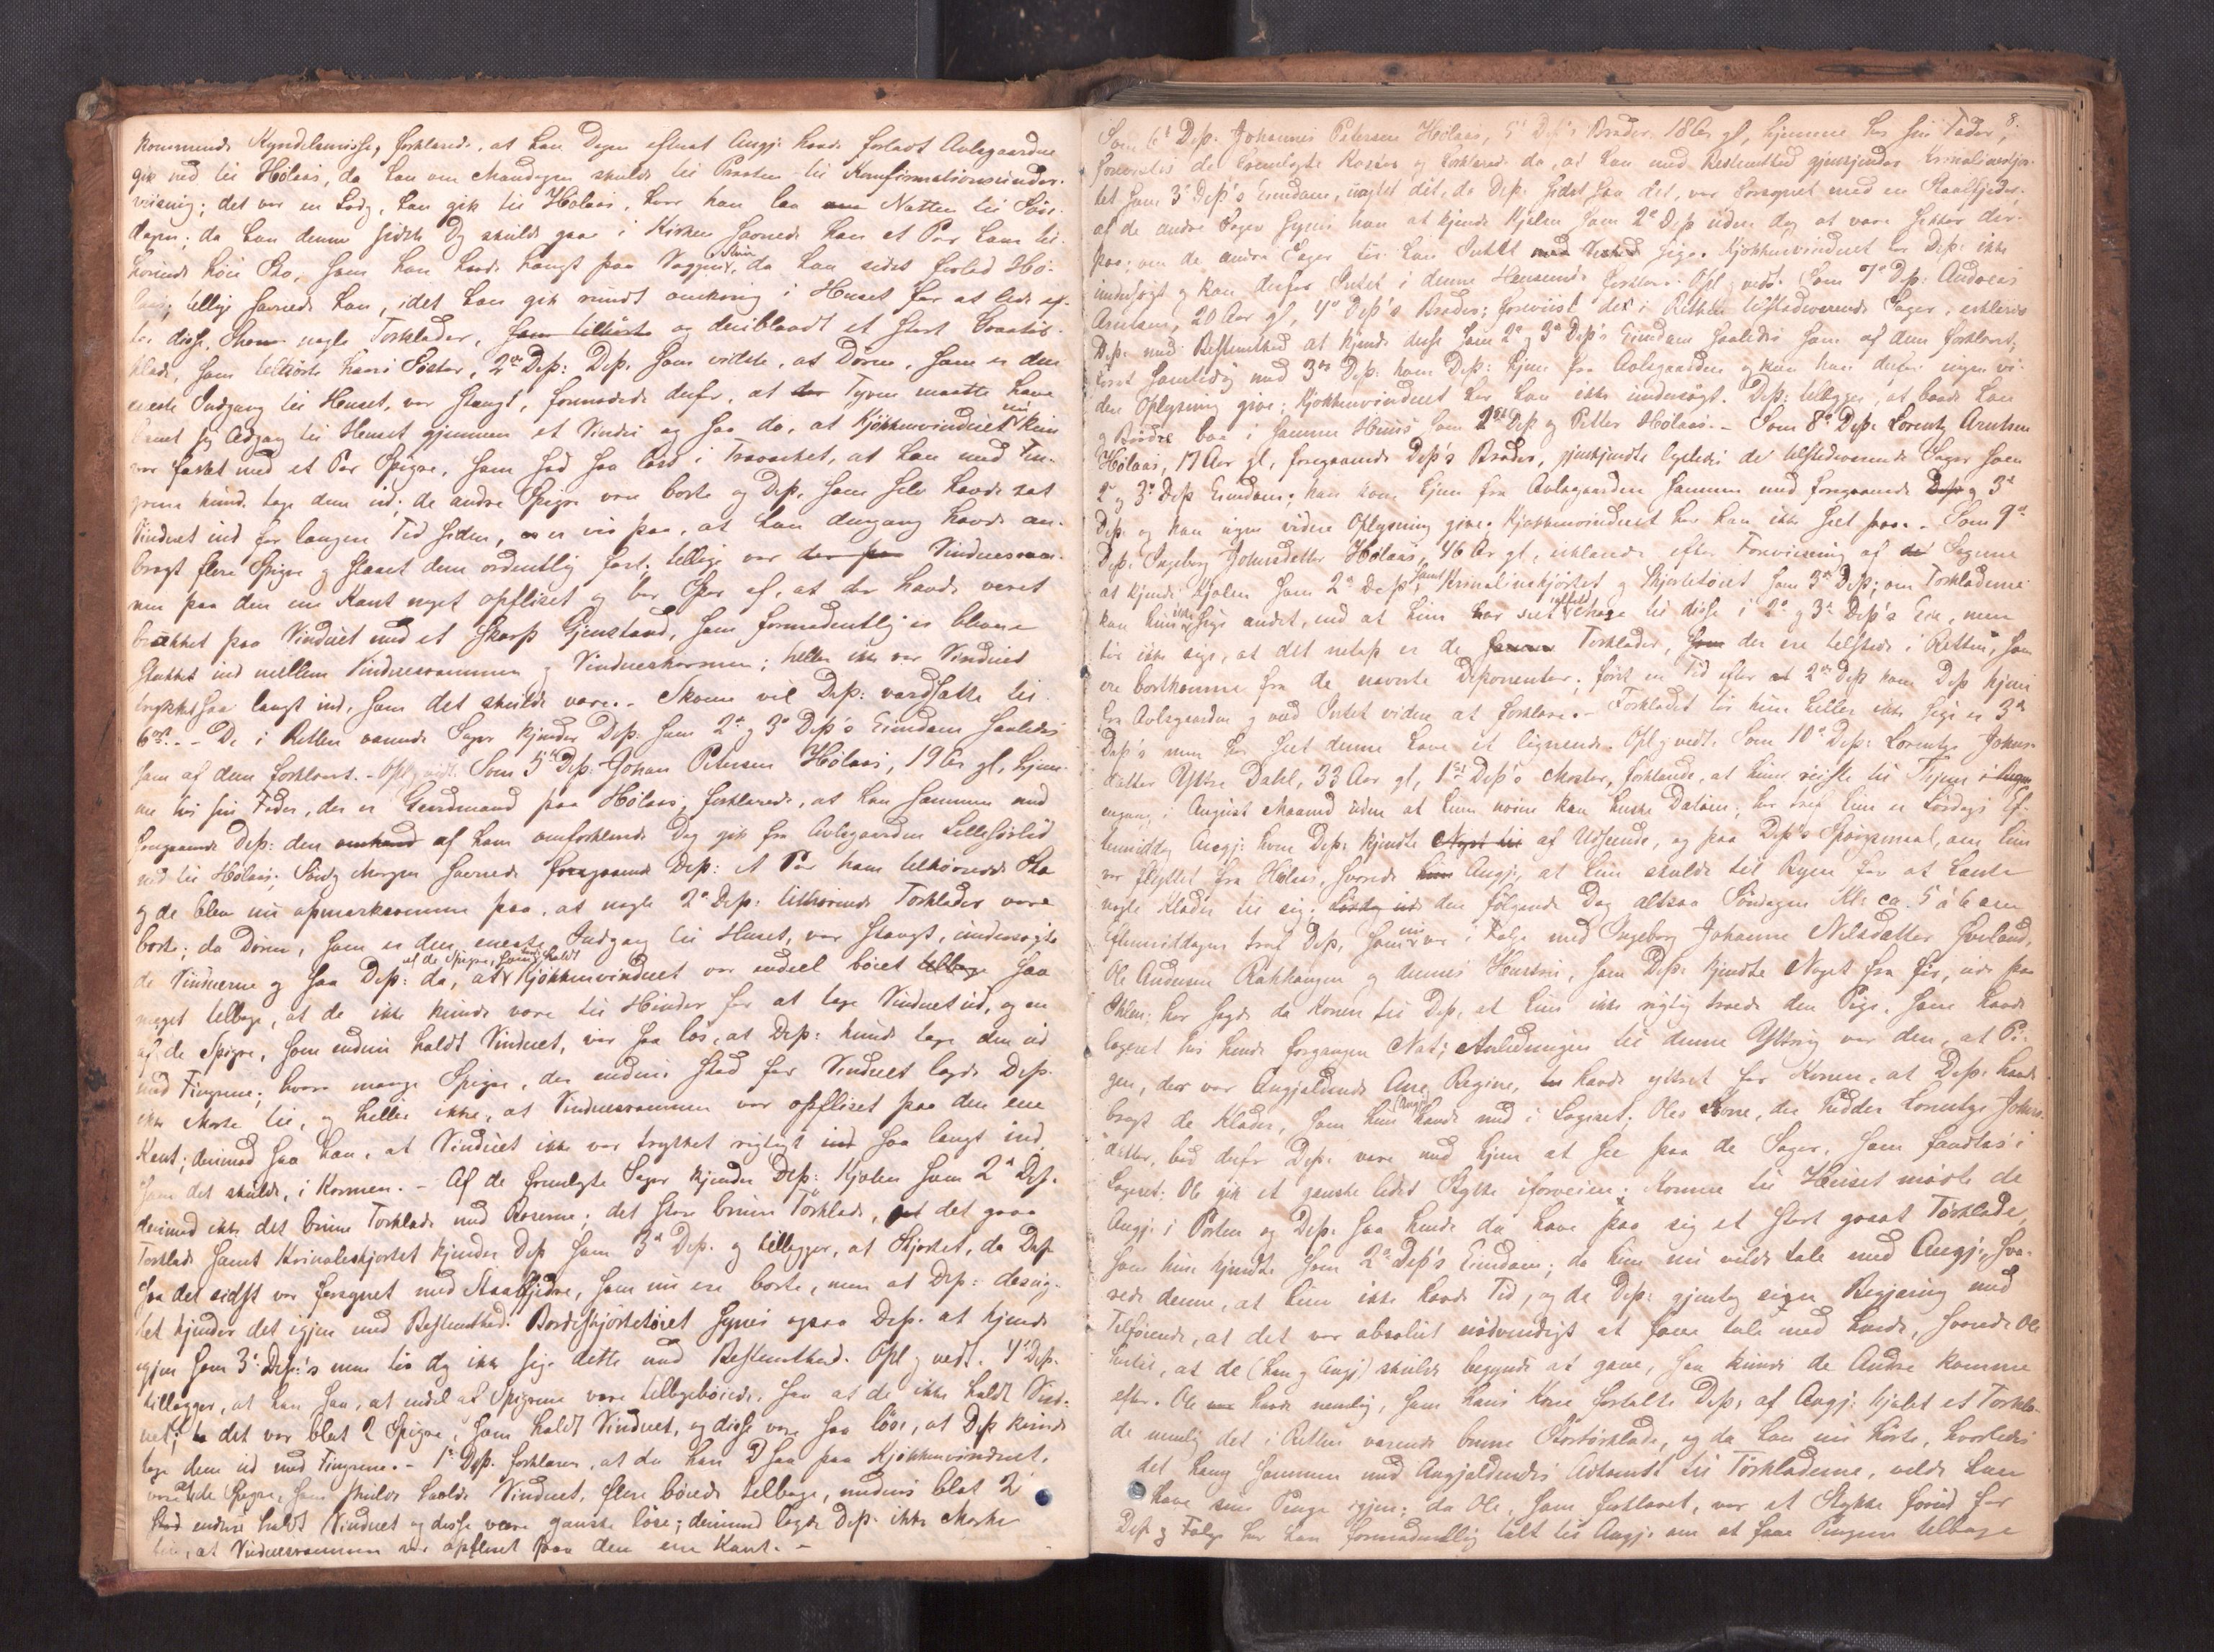 kommende Kyndelsmisse, forklarede, at han Dagen efterat Angj: havde forladt Avlsgaarden
gik ned til Hölaas, da han om Mandagen skulde til Præsten til Konfirmationsunder-
viisning; det var en Lördag, han gik til Hölaas, hvor han laa Natten til Sön-
dagen; da han denne sidste Dag skulde gaae i Kirken savnede han et Par ham til-
hörende höie Sko, som han havde hængt paa Væggen i Stuen, da han sidst forlod Hö-
laas; tillige savnede han, idet han gik rundt omkring i Huset for at lede ef-
ter disse Skoene nogle Törklæder, som tilhörte og deriblandt et stort
klæde, som tilhörte hans Söster, 2den Dep: Dep. som vidste, at Dören, som er den
eneste Indgang til Huset, var stængt, formodede derfor, at der Tyven maatte have
banet sig Adgang til Huset gjennem et Vindu og saa da, at Kjökkenvinduet nu kun
var fæstet med et Par Spigre, som sad saa löst i Træværket, at han med Fin-
grene kunde tage dem ud; de andre Spigre vare borte og Dep. som selv havde sat
Vinduet ind for længere Tid siden, er vis paa, at han dengang havde an-
bragt flere Spigre og slaaet dem ordentlig fast; tillige var der paa Vinduesram-
men paa den ene Kant noget opfliset og bar Spor af, at der havde været
brækket paa Vinduet med et skarp Gjenstand, som formodentlig er bleven
stukket ind mellem Vinduesrammen og Vindueskarmen; heller ikke var Vinduet
trykket saa langt ind, som det skulde være. - Skoene vil Dep: værdsætte til
6 ort. - De i Retten værende Sager kjender Dep. som 2den og 3de Dep's Eiendom saaledes
som af dem forklaret. - Opl. og vedt. Som 5te Dep. Johan Petersen Hölaas, 19 Aar gl, hjem-
me hos sin Fader, der er Gaardmand paa Hölaas, forklarede, at han sammen med
foregaaende Dep: den omhand af ham omforklarede Dag gik fra Avlsgaarden Lillefosslid
ned til Hölaas; Söndag Morgen savnede foregaaende Dep: et Par ham tilhörende Sko
og de blev nu opmærksomme paa, at nogle 2den Dep: tilhörende Törklæder vare
borte; da Dören, som er den eneste Indgang til Huset, var stængt, undersögte
de Vinduerne og saa Dep: da, at af de Spigre, som holdt Kjökkenvinduet var endeel böiet tilbage saa
meget tilbage, at de ikke kunde være til Hinder for at tage Vinduet ud, og en
af de Spigre, som endnu holdt Vinduet, var saa lös, at Dep: kunde tage den ud
med Fingrene; hvor mange Spigre, der endnu stod for Vinduet lagde Dep.
ikke Mærke til, og heller ikke, at Vinduesrammen var opfliset paa den ene
Kant; derimod saa han, at Vinduet ikke var trykket rigtigt ind saa langt ind,
som det skulde, i Karmen. - Af de fremlagte Sager kjender Dep: Kjolen som 2den Dep.
derimod ikke det brune Törklæde med Roserne; det store brune Törklæde, det graa
Törklæde samt Krinoleskjörtet kjender Dep som 3de Dep. og tillægger, at Skjörtet, da Dep
saa det sidst var forsynet med Staalfjedre, som nu ere borte, men at Dep: desuag-
tet kjender det igjen med Bestemthed. Bordeskjörtetöiet synes ogsaa Dep. at kjende
igjen som 3de Dep:'s men tör dog ikke sige dette med Bestemthed. Opl. og vedt. 4de Dep.
tillægger, at han saa, at endel af Spigrene vare tilbageböiede, saa at de ikke holdt Vind-
uet; det var blot 2 Spigre, som holdt Vinduet, og disse vare saa löse, at Dep kunde
tage dem ud med Fingrene. - 1ste Dep. forklarer, at da han saa paa Kjökkenvinduet,
vare de Spigre, som skulde holde Vinduet, flere böiede tilbage, medens blot 2
stod endnu holdt Vinduet og disse vare ganske löse; derimod lagde Dep. ikke Mærke
til, at Vinduesrammen var opfliset paa den ene Kant. -
8.
Som 6te Dep. Johannes Petersen Hölaas, 5te Dep's Broder 18 Aar gl, hjemme hos sin Fader,
forevistes de fremlagte Koster og forklarede da, at han med Bestemthed gjenkjender Krinolineskjör-
tet som 3de Dep's Eiendom, uagtet det, da Dep. sidst saa det, var forsynet med en Staalfjeder;
af de andre Sager synes han at kjende Kjolen som 2den Dep uden dog at være sikker der-
paa; om de andre Sager tör han Intet med Vished sige. Kjökkenvinduet har Dep: ikke
undersögt og kan derfor Intet i denne Henseende forklare. Opl. og vedt. Som 7de Dep: Andreas
Arntsen, 20 Aar gl, 4de Dep's Broder; foreviist de i Retten tilstedeværende Sager, erklærede
Dep. med Bestemthed at kjende disse som 2den og 3de Dep's Eiendom saaledes som af dem forklaret;
först samtidig med 3de Dep: kom Dep: hjem fra Avlsgaarden og kan han derfor ingen vi-
dere Oplysning give; Kjökkenvinduet har han ikke undersögt. Dep: tillægger, at baade han
og Brödre boe i samme Huus som 2den Dep og Petter Hölaas. - Som 8de Dep: Lorentz Arntsen
Hölaas, 17 Aar gl, foregaaende Dep's Broder, gjenkjendte ligeledes de tilstedeværende Sager som
2den og 3de Dep Eiendom; han kom hjem fra Avlsgaarden sammen med foregaaende Dep og 3de
Dep. og kan ingen videre Oplysning give. Kjökkenvinduet har han ikke seet paa. - Som 9de
Dep. Ingeborg Johnsdatter Hölaas, 46 Aar gl, erklærede efter Foreviisning af de Sagerne
at kjende Kjolen som 2den Dep's, samt Krinolineskjörtet og Skjörtetöiet som 3de Dep; om Törklæderne
kan hun ikke sige andet, end at hun har seet Mage til disse i 2den og 3de Dep's Eie, men
tör ikke sige, at det netop er de samme Törklæder, som der ere tilstede i Retten, som
ere bortkomne fra de nævnte Deponenter; först en Tid efter at 2den Dep kom Dep hjem
fra Avlsgaarden og veed Intet videre at forklare. - Forklædet tör hun heller ikke sige er 3de
Dep's men har seet denne have et lignende. Opl. og vedt. Som 10de Dep: Lorentze Johns-
datter Yttre Dahl, 33 Aar gl, 1ste Dep's Moster, forklarede, at hun reiste til Thjem i Augu
engang i August Maaned uden at hun nöie kan huske Datoen; her traf hun en Lördags Ef-
termiddag Angj: hvem Dep: kjendte Noget til af Udseende, og paa Dep's Spörgsmaal, om hun
var flyttet fra Hölaas, svarede hun Angj, at hun skulde til Byen for at hente
nogle Klæder til sig; Lördag ud den fölgende Dag altsaa Söndagen Kl: ca. 5 á 6 om
Eftermiddagen traf Dep, som nu var i Fölge med Ingeborg Johanne Nilsdatter Hveland,
Ole Andersen Rökhaugen og dennes Hustru, som Dep: kjendte Noget fra för, ude paa
Ihlen; her sagde da Konen til Dep, at hun ikke rigtig troede den Pige, som havde
logeret hos hende forgangen Nat; Anledningen til denne Yttring var den, at Pi-
gen, der var Angjældende Ane Regine, havde yttret for Konen, at Dep. havde
bragt de Klæder, som hun (Angj:) havde med i Logiet; Oles Kone, der hedder Lorentze Johns-
datter, bad derfor Dep. være med hjem at see paa de Sager, som fandtes i
Logiet; Ole gik et ganske lidet Stykke iforveien; Komne til Huset mödte de
Angj. i Porten og Dep. saa hende da have paa sig et stort graat Törklæde,
som hun kjendte som 2den Dep's Eiendom; da hun nu vilde tale med Angj:, sva-
rede denne, at hun ikke havde Tid, og da Dep: gjentog sin Begjæring med
Tilföiende, at det var absolut nödvendigt at faae tale med hende, svarede Ole
hertil, at de (han og Angj) skulde begynde at gaae, saa kunde de Andre komme
efter. Ole havde nemlig, som hans Kone fortalte Dep, af Angj: kjöbt et Törklæ-
de nemlig det i Retten værende brune Stortörklæde, og da han nu hörte, hvorledes
det hang sammen med Angjældendes Adkomst til Törklæderne, vilde han
have sine Penge igjen; da Ole, som forklaret, var et Stykke forud for
Dep og Fölge har han formodentlig talt til Angj: om at faae Pengene tilbage